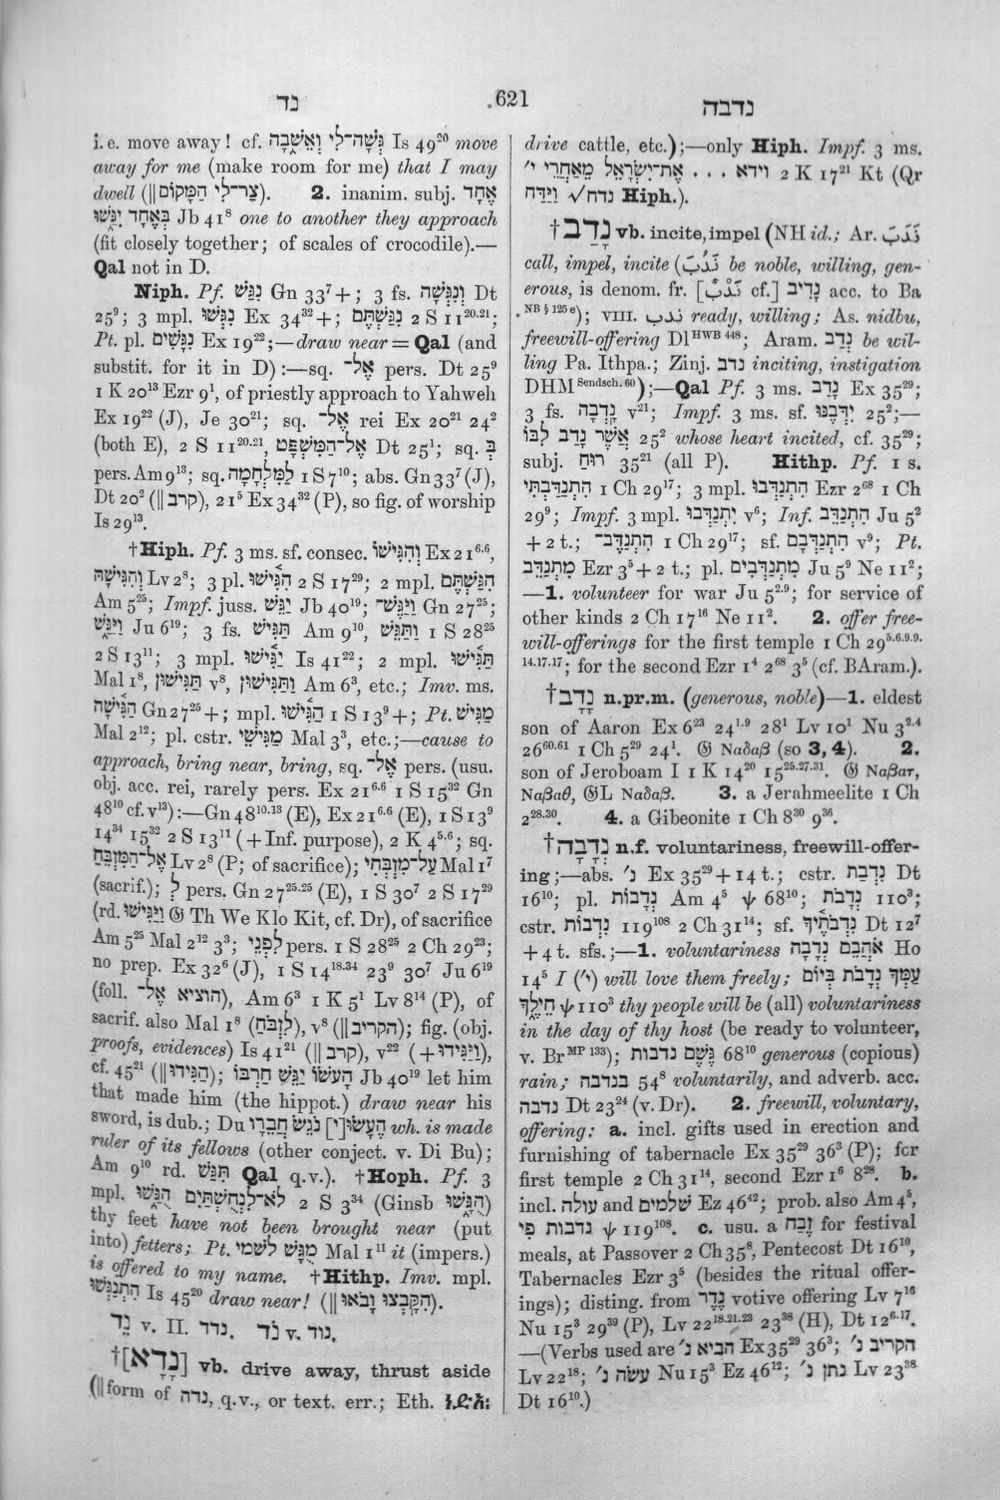 נד
621
נדבה
i.e. move away! cf. גְּשָׁה־לִּי וְאֵשֵׁבָה Is 49²⁰ move
away for me (make room for me) that I may
dwell (‖ צַר־לִי הַמָּקוֹם). 2. inanim. subj. אֶחָד
בְּאֶחָד יִגַּ֑שׁוּ Jb 41⁸ one to another they approach
(fit closely together; of scales of crocodile).—
Qal not in D.
Niph. Pf. נִגַּשׁ Gn 33⁷+; 3 fs. וְנִגְּשָׁה Dt
25⁹; 3 mpl. נִגְּשׁוּ Ex 34³²+; נִגַּשְׁתֶּם 2 S 11²⁰·²¹;
Pt. pl. נִגָּשִׁים Ex 19²²;—draw near = Qal (and
substit. for it in D):—sq. אֶל־ pers. Dt 25⁹
1 K 20¹³ Ezr 9¹, of priestly approach to Yahweh
Ex 19²² (J), Je 30²¹; sq. אֶל־ rei Ex 20²¹ 24²
(both E), 2 S 11²⁰·²¹, אֶל־הַמִּשְׁפָּט Dt 25¹; sq. בְּ
pers. Am 9¹³; sq. לַמִּלְחָמָה 1 S 7¹⁰; abs. Gn 33⁷ (J),
Dt 20² (‖ קרב), 21⁵ Ex 34³² (P), so fig. of worship
Is 29¹³.
†Hiph. Pf. 3 ms. sf. consec. וְהִגִּישׁוֹ Ex 21⁶·⁶,
וְהִגִּישָׁהּ Lv 2⁸; 3 pl. הִגִּישׁוּ 2 S 17²⁹; 2 mpl. הִגַּשְׁתֶּם
Am 5²⁵; Impf. juss. יַגֵּשׁ Jb 40¹⁹; וַיַּגֶּשׁ־ Gn 27²⁵;
וַיַּגַּ֑שׁ Ju 6¹⁹; 3 fs. תַּגִּישׁ Am 9¹⁰, וַתַּגֵּשׁ 1 S 28²⁵
2 S 13¹¹; 3 mpl. יַגִּישׁוּ Is 41²²; 2 mpl. תַּגִּישׁוּ
Mal 1⁸, תַּגִּישׁוּן v⁸, וַתַּגִּישׁוּן Am 6³, etc.; Imv. ms.
הַגִּישָׁה Gn 27²⁵+; mpl. הַגִּישׁוּ 1 S 13⁹+; Pt. מַגִּישׁ
Mal 2¹²; pl. cstr. מַגִּישֵׁי Mal 3³, etc.;—cause to
approach, bring near, bring, sq. אֶל־ pers. (usu.
obj. acc. rei, rarely pers. Ex 21⁶·⁶ 1 S 15³² Gn
48¹⁰ cf. v¹³):—Gn 48¹⁰·¹³ (E), Ex 21⁶·⁶ (E), 1 S 13⁹
14³⁴ 15³² 2 S 13¹¹ (+ Inf. purpose), 2 K 4⁵·⁶; sq.
אֶל־הַמִּזְבֵּחַ Lv 2⁸ (P; of sacrifice); עַל־מִזְבְּחִי Mal 1⁷
(sacrif.); לְ pers. Gn 27²⁵·²⁵ (E), 1 S 30⁷ 2 S 17²⁹
(rd. וַיַּגִּישׁוּ 𝔊 Th We Klo Kit, cf. Dr), of sacrifice
Am 5²⁵ Mal 2¹² 3³; לִפְנֵי pers. 1 S 28²⁵ 2 Ch 29²³;
no prep. Ex 32⁶ (J), 1 S 14¹⁸·³⁴ 23⁹ 30⁷ Ju 6¹⁹
(foll. הוציא אֶל־), Am 6³ 1 K 5¹ Lv 8¹⁴ (P), of
sacrif. also Mal 1⁸ (לִזְבֹּחַ), v⁸ (‖ הקריב); fig. (obj.
proofs, evidences) Is 41²¹ (‖ קרב), v²² (+ וְיַגִּידוּ),
cf. 45²¹ (‖ הַגִּידוּ); הָעֹשׂוֹ יַגֵּשׁ חַרְבּוֹ Jb 40¹⁹ let him
that made him (the hippot.) draw near his
sword, is dub.; Du הֶעָשׂוּ[י] נֹגֵשׂ חֲבֵרָו wh. is made
ruler of its fellows (other conject. v. Di Bu);
Am 9¹⁰ rd. תִּגַּשׁ Qal q.v.). †Hoph. Pf. 3
mpl. לֹא־לִנְחֻשְׁתַּיִם הֻגַּ֑שׁוּ 2 S 3³⁴ (Ginsb הֻגָּ֑שׁוּ)
thy feet have not been brought near (put
into) fetters; Pt. מֻגָּשׁ לשמי Mal 1¹¹ it (impers.)
is offered to my name. †Hithp. Imv. mpl.
הִתְנַגְּשׁוּ Is 45²⁰ draw near! (‖ הִקָּבְצוּ וָבֹאוּ).
נֵד v. II. נדד. נֹד v. נוד.
†[נָדָא] vb. drive away, thrust aside
(‖ form of נדה, q.v., or text. err.; Eth. ነድአ፡
drive cattle, etc.);—only Hiph. Impf. 3 ms.
וידא . . . אֶת־יִשְׂרָאֵל מֵאַחֲרֵי י׳ 2 K 17²¹ Kt (Qr
וַיַּדַּח √נדח Hiph.).
†נָדַב vb. incite, impel (NH id.; Ar. نَدَبَ
call, impel, incite (نَدُبَ be noble, willing, gen-
erous, is denom. fr. [نَدْبٌ cf.] נָדִיב acc. to Ba
NB § 125 e); VIII. ندب ready, willing; As. nidbu,
freewill-offering Dl HWB 448; Aram. נְדַב be wil-
ling Pa. Ithpa.; Zinj. נדב inciting, instigation
DHM Sendsch. 60);—Qal Pf. 3 ms. נָדַב Ex 35²⁹;
3 fs. נָדְבָה v²¹; Impf. 3 ms. sf. יִדְּבֶנּוּ 25²;—
אֲשֶׁר נָדַב לִבּוֹ 25² whose heart incited, cf. 35²⁹;
subj. רוּחַ 35²¹ (all P). Hithp. Pf. 1 s.
הִתְנַדַּבְתִּי 1 Ch 29¹⁷; 3 mpl. הִתְנַדְּבוּ Ezr 2⁶⁸ 1 Ch
29⁹; Impf. 3 mpl. יִתְנַדְּבוּ v⁶; Inf. הִתְנַדֵּב Ju 5²
+ 2 t.; הִתְנַדֶּב־ 1 Ch 29¹⁷; sf. הִתְנַדְּבָם v⁹; Pt.
מִתְנַדֵּב Ezr 3⁵ + 2 t.; pl. מִתְנַדְּבִים Ju 5⁹ Ne 11²;
—1. volunteer for war Ju 5²·⁹; for service of
other kinds 2 Ch 17¹⁶ Ne 11². 2. offer free-
will-offerings for the first temple 1 Ch 29⁵·⁶·⁹·⁹·
¹⁴·¹⁷·¹⁷; for the second Ezr 1⁴ 2⁶⁸ 3⁵ (cf. BAram.).
†נָדָב n.pr.m. (generous, noble)—1. eldest
son of Aaron Ex 6²³ 24¹·⁹ 28¹ Lv 10¹ Nu 3²·⁴
26⁶⁰·⁶¹ 1 Ch 5²⁹ 24¹. 𝔊 Ναδαβ (so 3, 4). 2.
son of Jeroboam I 1 K 14²⁰ 15²⁵·²⁷·³¹. 𝔊 Ναβατ,
Ναβαθ, 𝔊L Ναδαβ. 3. a Jerahmeelite 1 Ch
2²⁸·³⁰. 4. a Gibeonite 1 Ch 8³⁰ 9³⁶.
†נְדָבָה n.f. voluntariness, freewill-offer-
ing;—abs. נ׳ Ex 35²⁹ + 14 t.; cstr. נִדְבַת Dt
16¹⁰; pl. נְדָבוֹת Am 4⁵ ψ 68¹⁰; נְדָבֹת 110³;
cstr. נִדְבוֹת 119¹⁰⁸ 2 Ch 31¹⁴; sf. נִדְבֹתֶיךָ Dt 12⁷
+ 4 t. sfs.;—1. voluntariness אֹהֲבֵם נְדָבָה Ho
14⁵ I (י׳) will love them freely; עַמְּךָ נְדָבֹת בְּיוֹם
חֵילֶךָ ψ 110³ thy people will be (all) voluntariness
in the day of thy host (be ready to volunteer,
v. Br MP 133); גֶּשֶׁם נדבות 68¹⁰ generous (copious)
rain; בנדבה 54⁸ voluntarily, and adverb. acc.
נדבה Dt 23²⁴ (v. Dr). 2. freewill, voluntary,
offering: a. incl. gifts used in erection and
furnishing of tabernacle Ex 35²⁹ 36³ (P); for
first temple 2 Ch 31¹⁴, second Ezr 1⁶ 8²⁸. b.
incl. עולה and שׁלמים Ez 46¹²; prob. also Am 4⁵,
נדבות פי ψ 119¹⁰⁸. c. usu. a זֶבַח for festival
meals, at Passover 2 Ch 35⁸, Pentecost Dt 16¹⁰,
Tabernacles Ezr 3⁵ (besides the ritual offer-
ings); disting. from נֶדֶר votive offering Lv 7¹⁶
Nu 15³ 29³⁹ (P), Lv 22¹⁸·²¹·²³ 23³⁸ (H), Dt 12⁶·¹⁷.
—(Verbs used are הביא נ׳ Ex 35²⁹ 36³; הקריב נ׳
Lv 22¹⁸; עשׂה נ׳ Nu 15³ Ez 46¹²; נתן נ׳ Lv 23³⁸
Dt 16¹⁰.)